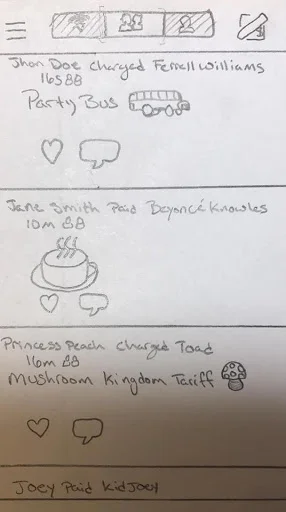 Jhon Doe charged Ferrell Williams
Party Bus
Jane Smith Paid Beyoncé Knowles
10m
Princess Peach charged Toad
16m
Mushroom Kingdom Tariff
Joey Paid KidJoey